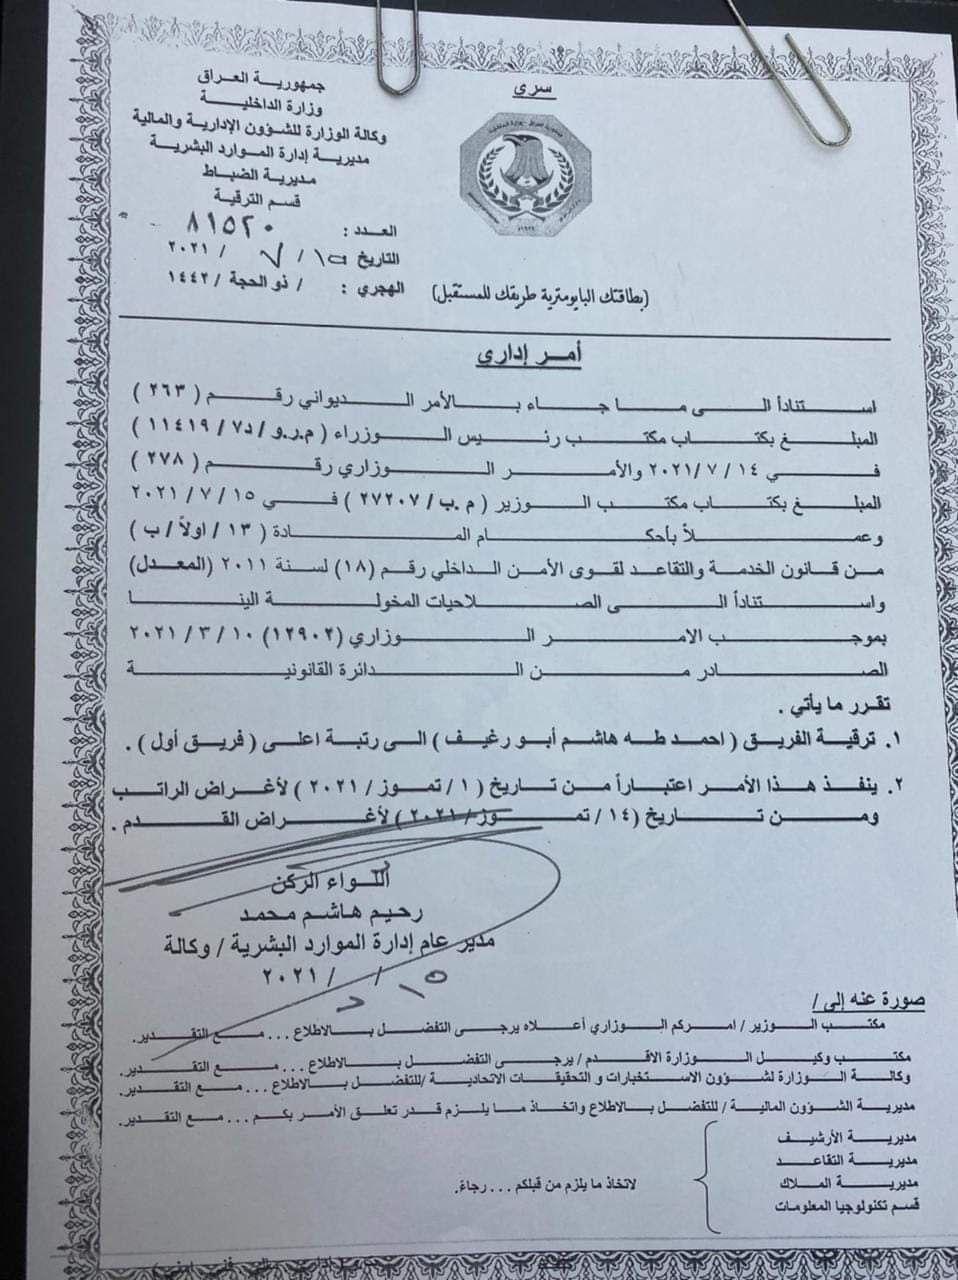 سري
جمهورية العراق
وزارة الداخلية
وكالة الوزارة للشؤون الإدارية والمالية
مديرية إدارة الموارد البشرية
مديرية الضباط
قسم الترقية
العدد : ٨١٥٢٠
التاريخ ١٥ / ٧ / ٢٠٢١
الهجري : / ذو الحجة / ١٤٤٢
(بطاقتك البايومترية طريقك للمستقبل)
أمر إداري
استنادأ الى ما جاء بالأمر الديواني رقم ( ٢٦٣ )
المبلغ بكتاب مكتب رئيس الوزراء ( م.ر.و / د٧ / ١١٤١٩ )
في ١٤ / ٧ / ٢٠٢١ والأمر الوزاري رقم ( ٢٧٨ )
المبلغ بكتاب مكتب الوزير ( م.ب/ ٢٧٢٠٧ ) في ١٥ / ٧ / ٢٠٢١
وعملاً بأحكام المادة ( ١٣ / اولاً / ب )
من قانون الخدمة والتقاعد لقوى الأمن الداخلي رقم (١٨) لسنة ٢٠١١ (المعدل)
واستنادأ الى الصلاحيات المخولة الينا
بموجب الامر الوزاري (١٢٩٠٢) ١٠ / ٣ / ٢٠٢١
الصادر من الدائرة القانونية
تقرر ما يأتي .
١. ترقية الفريق ( احمد طه هاشم أبو رغيف ) الى رتبة اعلى ( فريق أول ) .
٢. ينفذ هذا الأمر اعتباراً من تاريخ ( ١ / تموز / ٢٠٢١ ) لأغراض الراتب
ومن تاريخ (١٤ / تموز / ٢٠٢١ ) لأغراض القدم .
اللواء الركن
رحيم هاشم محمد
مدير عام إدارة الموارد البشرية / وكالة
١٥ / / ٢٠٢١
صورة عنه إلى /
مكتب الوزير / امركم الوزاري أعلاه يرجى التفضل بالاطلاع ... مع التقدير.
مكتب وكيل الوزارة الاقدم / يرجى التفضل بالاطلاع ... مع التقدير.
وكالة الوزارة لشؤون الاستخبارات و التحقيقات الاتحادية /للتفضل بالاطلاع ... مع التقدير.
مديرية الشؤون المالية / للتفضل بالاطلاع واتخاذ ما يلزم قدر تعلق الأمر بكم ... مع التقدير.
مديرية الأرشيف
مديرية التقاعد
مديرية الملاك
قسم تكنولوجيا المعلومات
لاتخاذ ما يلزم من قبلكم ... رجاءً.